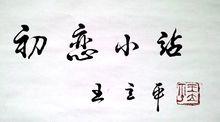 初恋小站
王立平